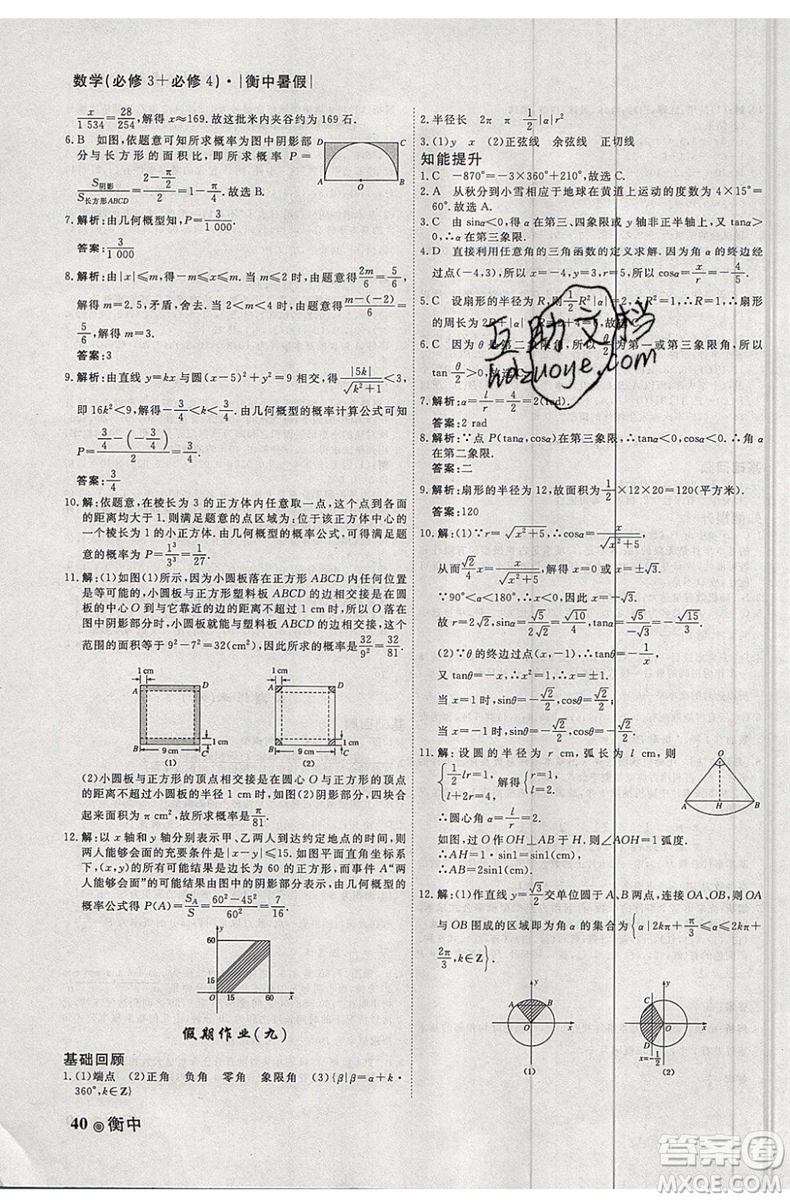 数学(必修3+必修4)·|衡中暑假|
x/1 534=28/254,解得x≈169.故这批米内夹谷约为169石.
6.B 如图,依题意可知所求概率为图中阴影部
分与长方形的面积比,即所求概率P=
S阴影/S长方形ABCD=(2-π/2)/2=1-π/4.故选B.
D C A O B
7.解析:由几何概型知,P=3/1 000.
答案:3/1 000
8.解析:由|x|≤m,得-m≤x≤m,当m≤2时,由题意得2m/6=5/6,
解得m=2.5,矛盾,舍去.当2<m<4时,由题意得(m-(-2))/6=
5/6,解得m=3.
答案:3
9.解析:由直线y=kx与圆(x-5)²+y²=9相交,得|5k|/√(k²+1)<3,
即16k²<9,解得-3/4<k<3/4.由几何概型的概率计算公式可知
P=(3/4-(-3/4))/2=3/4.
答案:3/4
10.解:依题意,在棱长为3的正方体内任意取一点,这个点到各面
的距离均大于1.则满足题意的点区域为:位于该正方体中心的
一个棱长为1的小正方体.由几何概型的概率公式,可得满足题
意的概率为P=1³/3³=1/27.
11.解:(1)如图(1)所示,因为小圆板落在正方形ABCD内任何位置
是等可能的,小圆板与正方形塑料板ABCD的边相交接是在圆
板的中心到与它靠近的边的距离不超过1 cm时,所以小圆板落
在图中阴影部分时,小圆板就能与塑料板ABCD的边相交接,这个
范围的面积等于9²-7²=32(cm²),因此所求的概率是32/9²=32/81.
1 cm A D B C 1 cm 9 cm (1)
1 cm A D B C 1 cm 9 cm (2)
(2)小圆板与正方形的顶点相交接是在圆心O与正方形的顶点
的距离不超过小圆板的半径1 cm时,如图(2)阴影部分,四块合
起来面积为π cm²,故所求概率是π/81.
12.解:以x轴和y轴分别表示甲、乙两人到达约定地点的时间,则
两人能够会面的充要条件是|x-y|≤15.如图平面直角坐标系
下,(x,y)的所有可能结果是边长为60的正方形,而事件A“两
人能够会面”的可能结果由图中的阴影部分表示,由几何概型的
概率公式得P(A)=S_A/S=(60²-45²)/60²=7/16.
y 60 15 O 15 60 x
假期作业(九)
基础回顾
1.(1)端点 (2)正角 负角 零角 象限角 (3){β|β=α+k·
360°,k∈Z}
40 衡中
2.半径长 2π π 1/2|α|r²
3.(1)y x (2)正弦线 余弦线 正切线
知能提升
1.C -870°=-3×360°+210°,故选C.
2.A 从秋分到小雪相应于地球在黄道上运动的度数为4×15°=
60°.故选A.
3.C 由sinα<0,得α在第三、四象限或y轴非正半轴上,tanα>
0,∴α在第三象限.
4.D 直接利用任意角的三角函数的定义求解.因为角α的终边经
过点(-4,3),所以x=-4,y=3,r=5,所以cosα=x/r=-4/5.
5.C 设扇形的半径为R,则1/2R²|α|=2,∴R²=1,∴R=1,∴扇形
的周长为2R+|α|·R=2+4=6.
6.C 因为θ是第二象限角,所以θ/2为第一或第三象限角,所以
tanθ/2>0.故选C.
7.解析:α=l/r=4/2=2(rad).
答案:2 rad
8.解析:∵点P(tanα,cosα)在第三象限,∴tanα<0,cosα<0.
答案:二
9.解析:扇形的半径为12,故面积为1/2×12×20=120(平方米).
答案:120
10.解:(1)∵r=√(x²+5),∴cosα=x/√(x²+5),
从而√2/4x=x/√(x²+5),解得x=0或x=±√3.
∵90°<α<180°,∴x<0,因此x=-√3.
故r=2√2,sinα=√5/(2√2)=√10/4,tanα=√5/(-√3)=-√15/3.
(2)∵θ的终边过点(x,-1),∴tanθ=-1/x,
又∵tanθ=-x,∴x²=1,∴x=±1.
当x=1时,sinθ=-√2/2,cosθ=√2/2;
当x=-1时,sinθ=-√2/2,cosθ=-√2/2.
11.解:设圆的半径为r cm,弧长为l cm,则
{1/2lr=1, l+2r=4, ∴{r=1, l=2,
∴圆心角α=l/r=2.
如图,过O作OH⊥AB于H,则∠AOH=1弧度.
∴AH=1·sin1=sin1(cm),
∴AB=2sin1(cm).
O A H B
12.解:(1)作直线y=√3/2交单位圆于A、B两点,连接OA、OB,则OA
与OB围成的区域即为角α的集合为{α|2kπ+π/3≤α≤2kπ+
2π/3,k∈Z}.
y A B O x (1)
y C D O x x=-1/2 (2)
互助文档
hdzuoye.com
答案圈
MXQE.COM